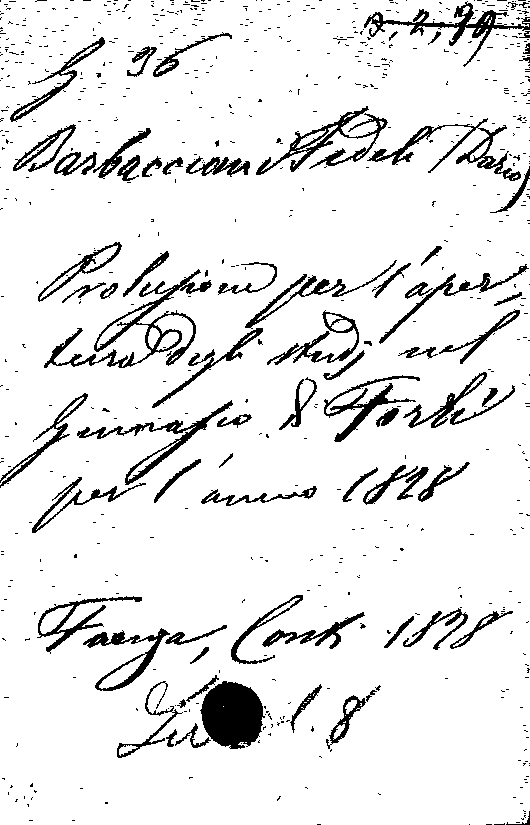 D. 2, 39
G. 36
Barbaccioni Fedeli (Dario)
Prolusione per l'aper-
tura degli studj nel
Ginnasio di Forlì
per l'anno 1828
Faenza, Conti 1828
8